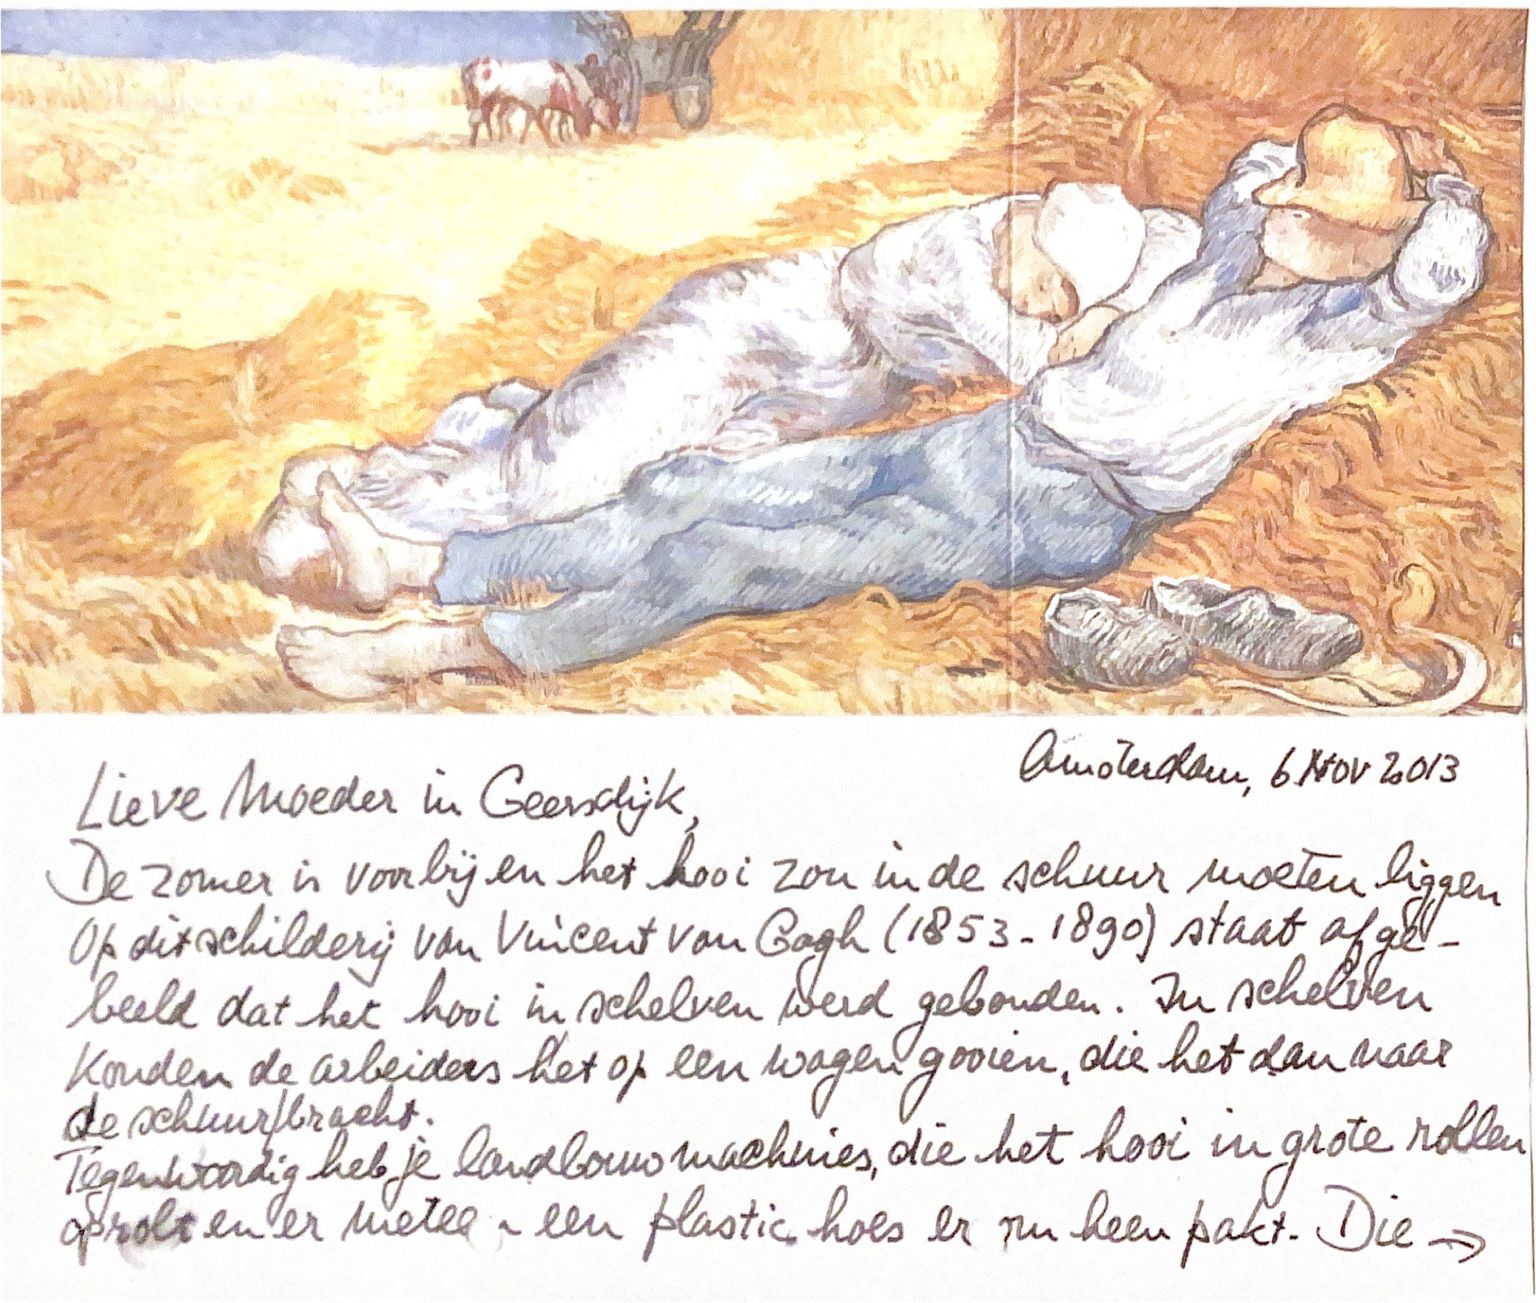 Amsterdam, 6 Nov 2013
Lieve Moeder in Geersdijk,
De zomer is voorbij en het hooi zou in de schuur moeten liggen
Op dit schilderij van Vincent van Gogh (1853-1890) staat afge-
beeld dat het hooi in schelven werd gebonden. In schelven
konden de arbeiders het op een wagen gooien, die het dan naar
de schuur bracht.
Tegenwoordig heb je landbouwmachines, die het hooi in grote rollen
oprolt en er meteen een plastic hoes er om heen pakt. Die →